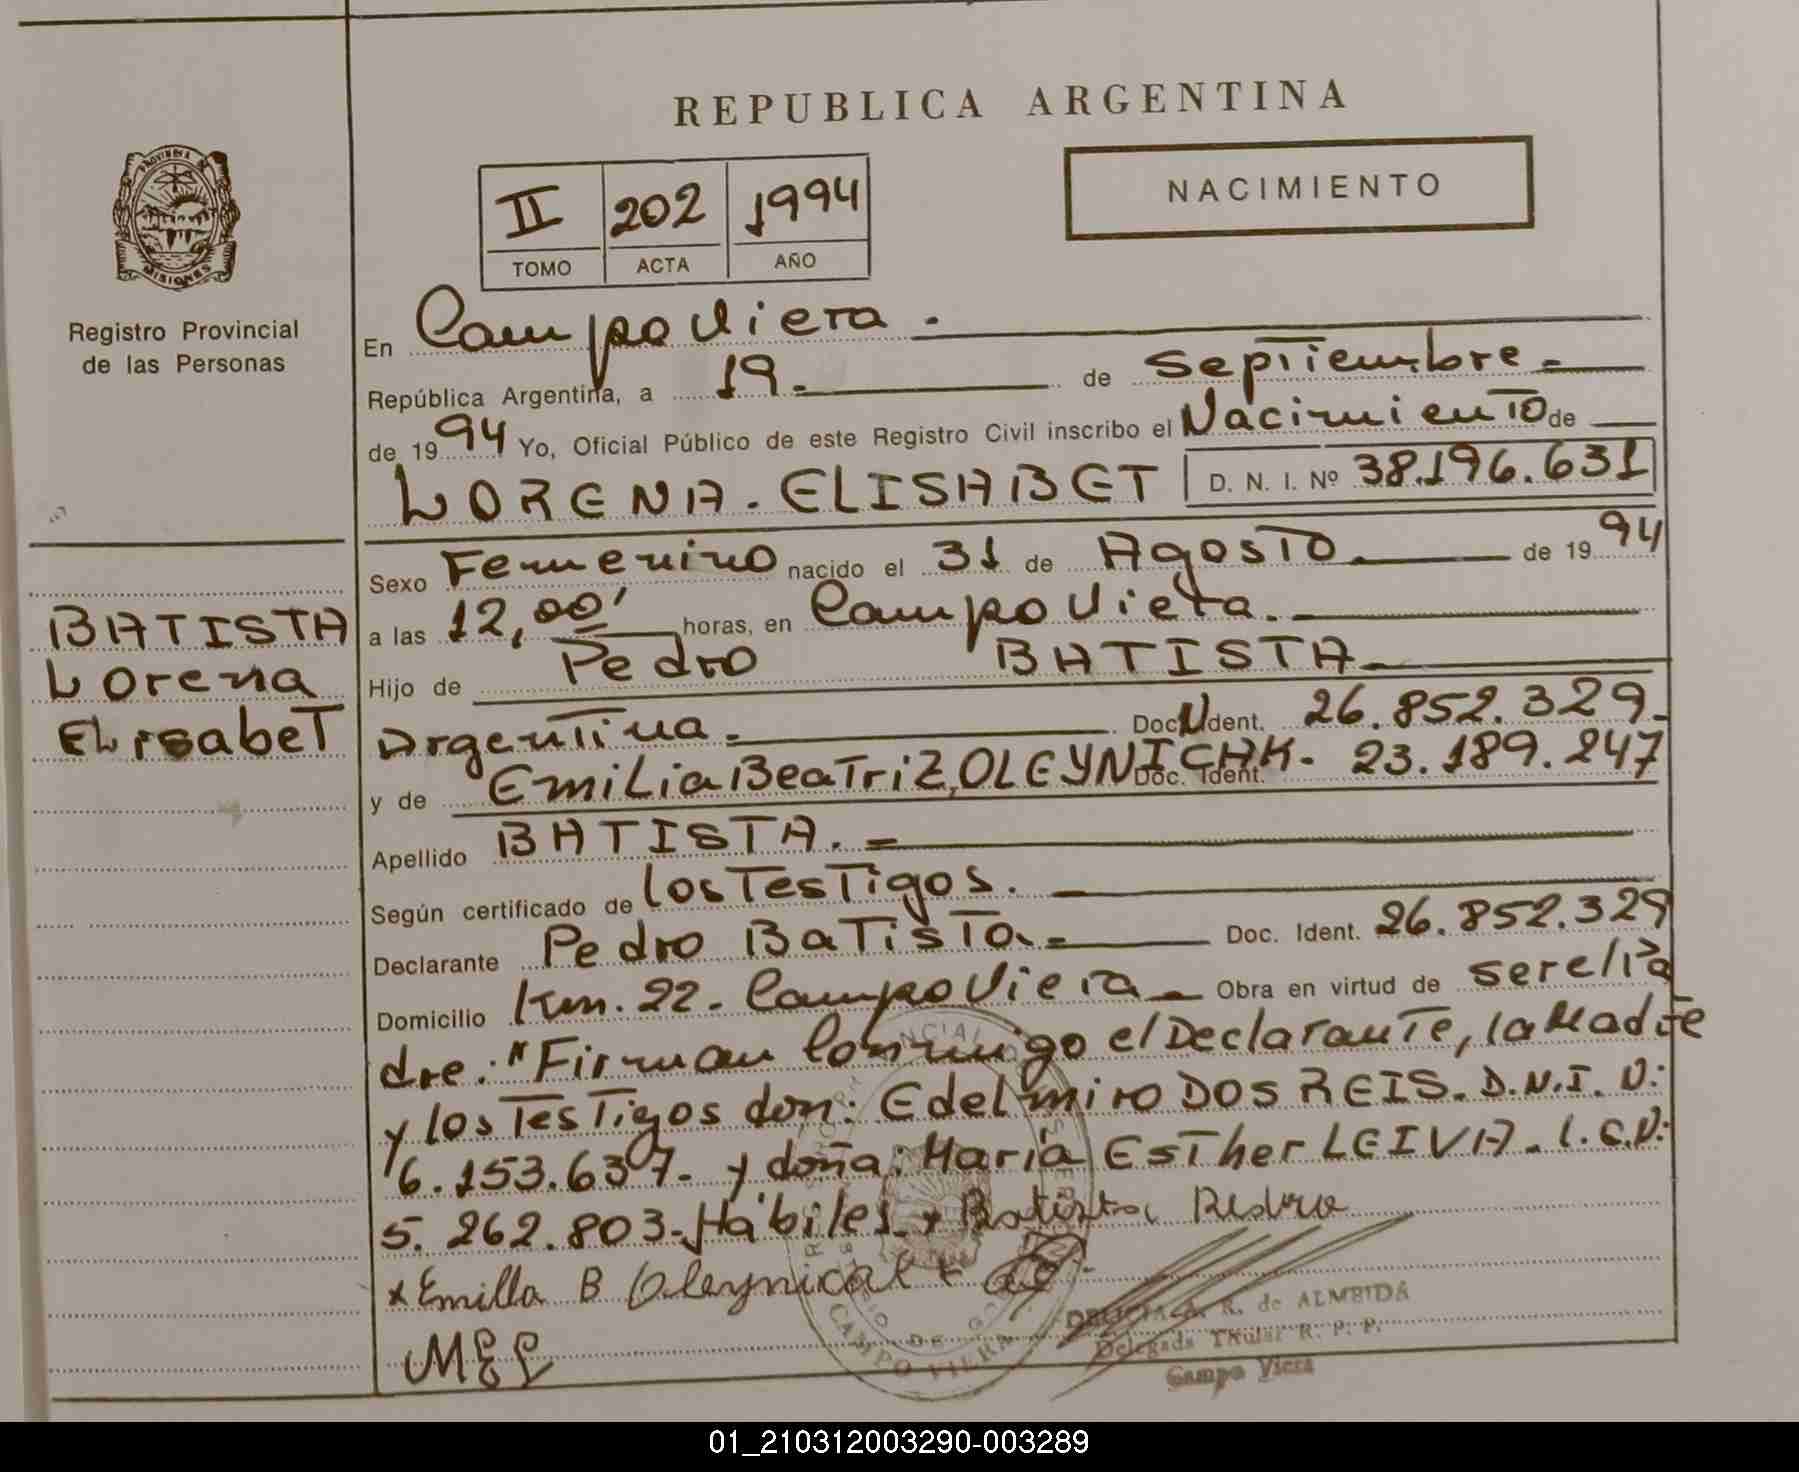 REPUBLICA ARGENTINA
NACIMIENTO
II 202 1994
TOMO ACTA AÑO
PROVINCIA DE
MISIONES
Registro Provincial
de las Personas
BATISTA
Lorena
Elisabet
En Campo Viera.
República Argentina, a 19. de septiembre.
de 1994 Yo, Oficial Público de este Registro Civil inscribo el Nacimiento de
LORENA. ELISABET D. N. I. Nº 38.196.631
Sexo Femenino nacido el 31 de Agosto. de 1994
a las 12,00' horas, en Campo Viera.
Hijo de Pedro BATISTA
Argentina. Doc. N Ident. 26.852.329.
y de Emilia Beatriz, OLEYNICHK. Doc. Ident. 23.189.247
Apellido BATISTA. =
Según certificado de los Testigos.
Declarante Pedro Batista. = Doc. Ident. 26.852.329
Domicilio Km. 22. Campo Viera Obra en virtud de ser el Pa
dre: "Firman Conmigo el Declarante, la Madre
y los Testigos don: Edelmiro DOS REIS. D.N.I. N:
6.153.637. y doña: María Esther LEIVA. L.C.N:
5.262.803. Hábiles. x Batista Pedro
x Emilla B Oleynicak x
MEL
DELICIA A. R. de ALMEIDA
Delegada Titular R. P. P.
Campo Viera
CAMPO VIERA
01_210312003290-003289